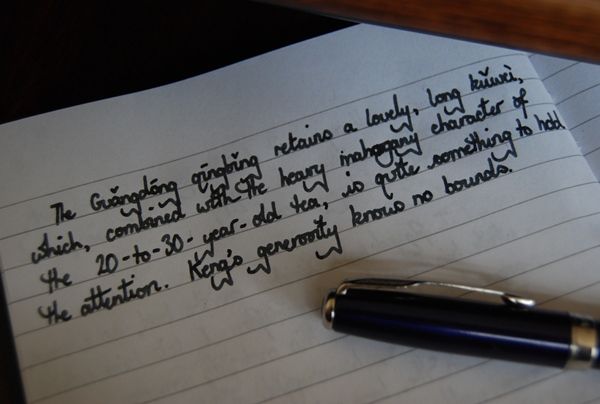 The Guǎngdōng qīngbǐng retains a lovely, long kǔwèi,
which, combined with the heavy mahogany character of
the 20-to-30-year-old tea, is quite something to hold
the attention. Keng's generosity knows no bounds.